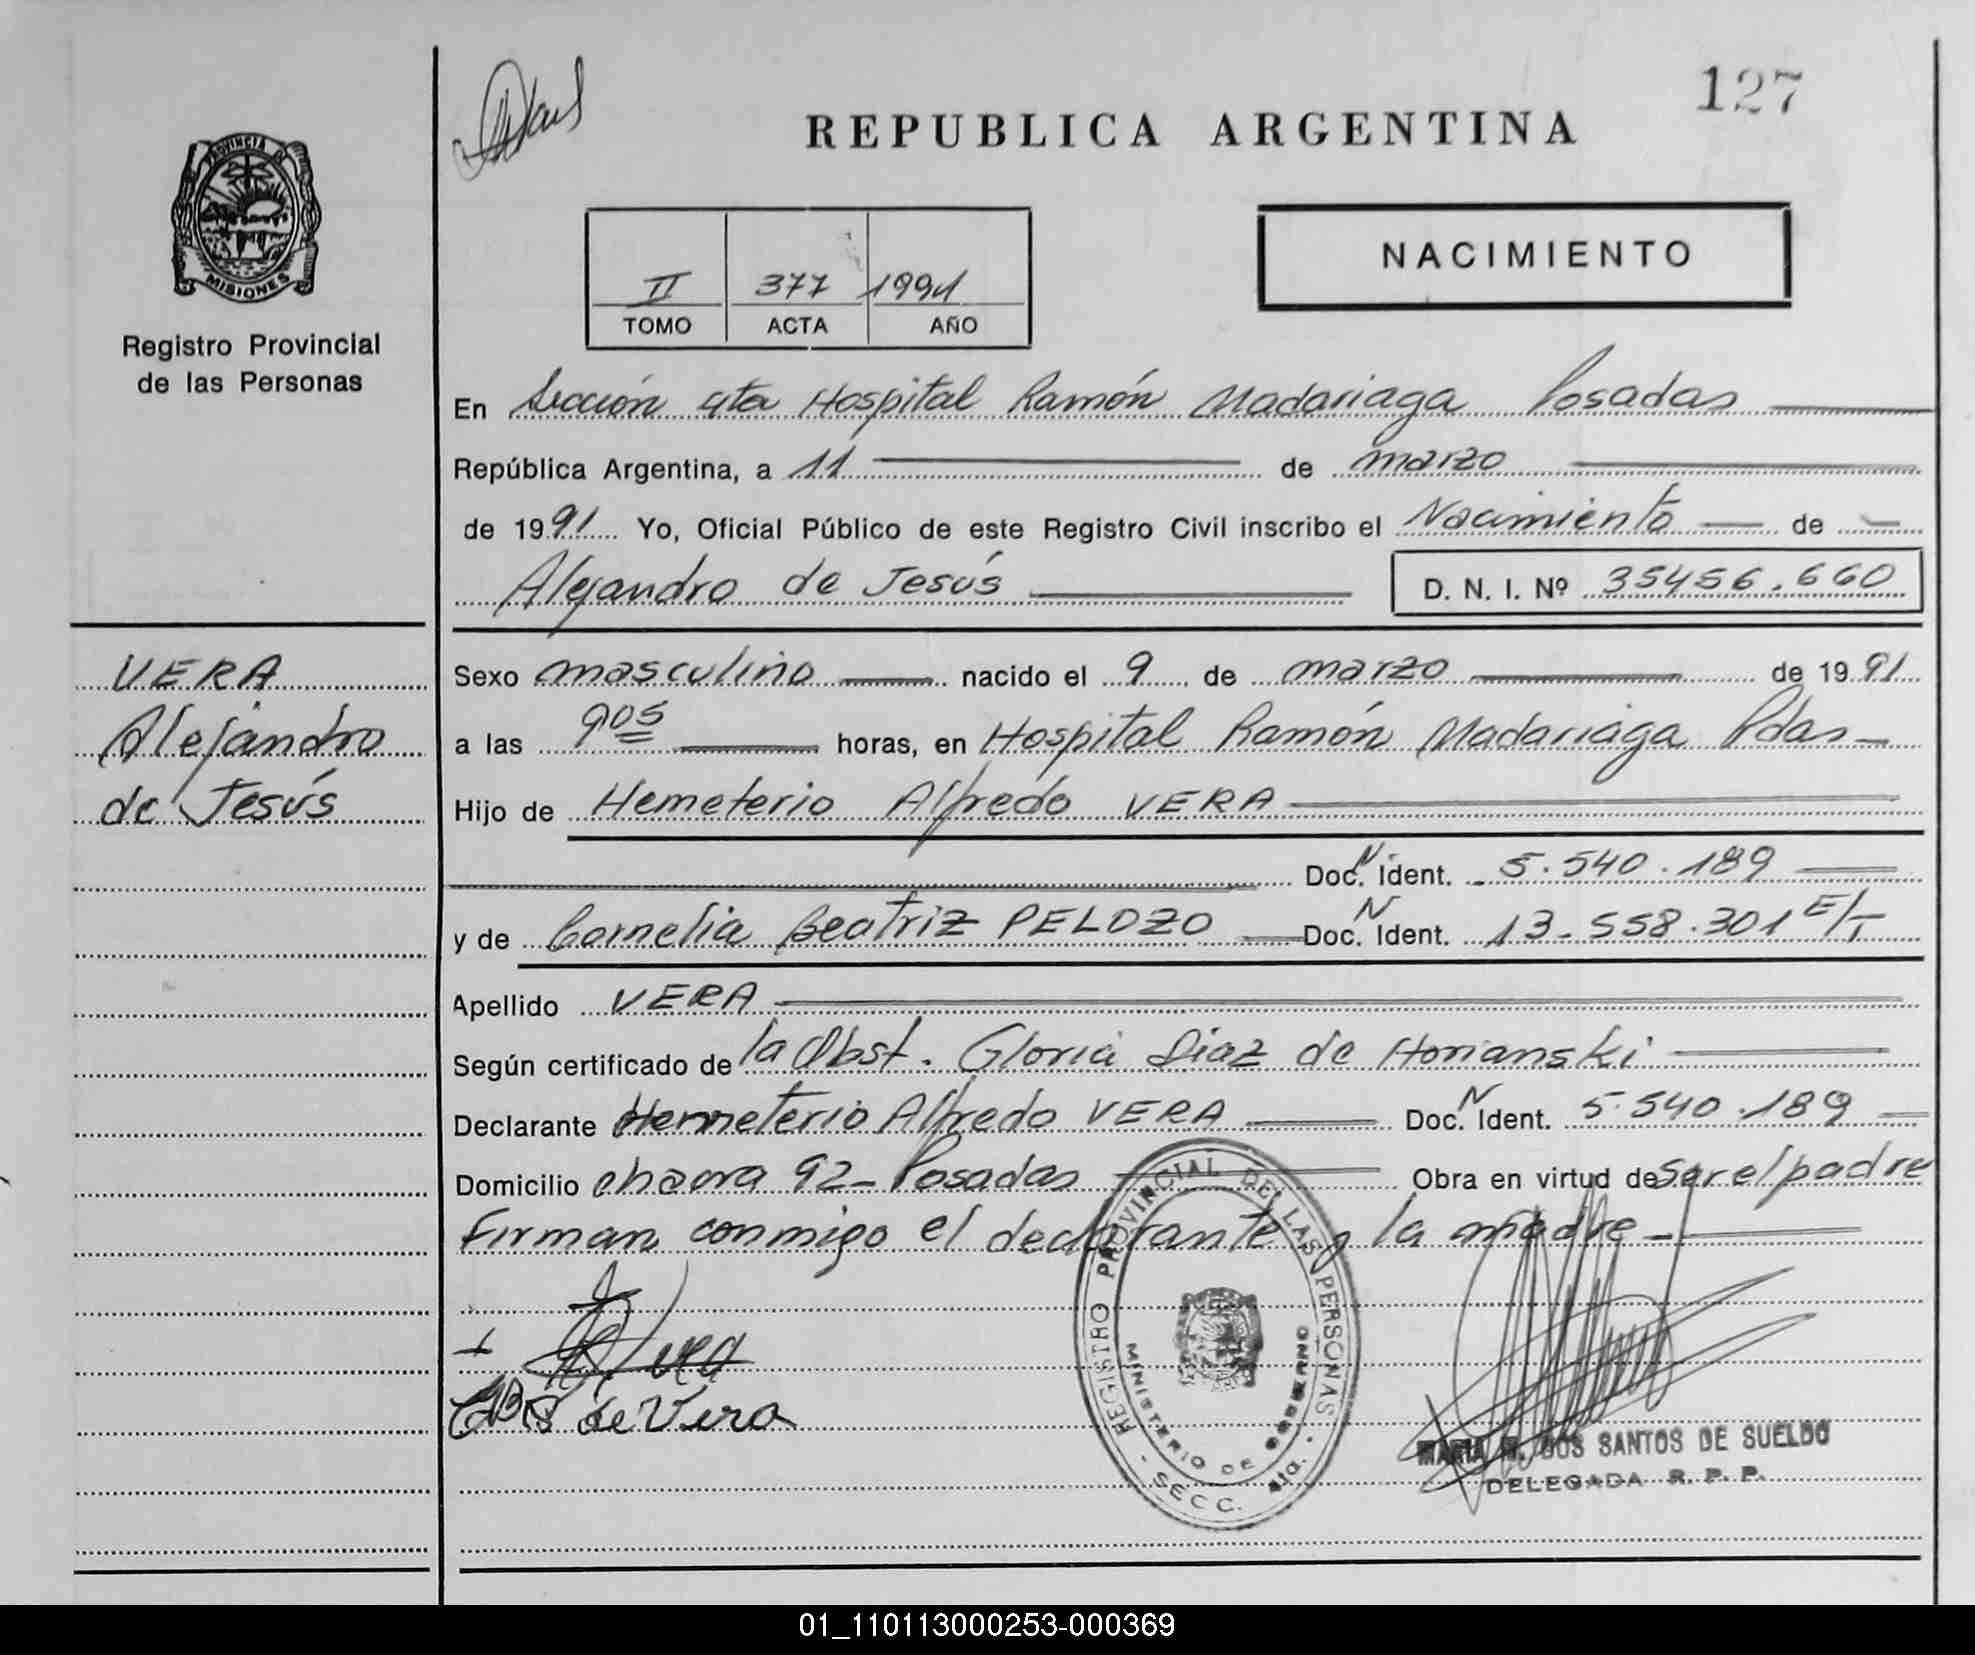 127
REPUBLICA ARGENTINA
PROVINCIA DE
MISIONES
Registro Provincial
de las Personas
NACIMIENTO
II 377 1991
TOMO ACTA AÑO
En Sección 4ta Hospital Ramón Madariaga Posadas
República Argentina, a 11 de marzo
de 1991 Yo, Oficial Público de este Registro Civil inscribo el Nacimiento de
Alejandro de Jesús D. N. I. Nº 35456.660
VERA
Alejandro
de Jesús
Sexo masculino nacido el 9 de marzo de 1991
a las 9 05 horas, en Hospital Ramón Madariaga Pdas
Hijo de Hemeterio Alfredo VERA
Doc. N Ident. 5.540.189
y de Cornelia Beatriz PELOZO Doc. N Ident. 13.558.301 E/T
Apellido VERA
Según certificado de la Obst. Gloria Diaz de Horianski
Declarante Hemeterio Alfredo VERA Doc. N Ident. 5.540.189
Domicilio chacra 92 - Posadas Obra en virtud de ser el padre
Firman conmigo el declarante y la madre
REGISTRO PROVINCIAL DE LAS PERSONAS
MINISTERIO DE GOBIERNO
- SECC. 4ta. -
de Vera
MARIA DOS SANTOS DE SUELDO
DELEGADA R. P. P.
01_110113000253-000369